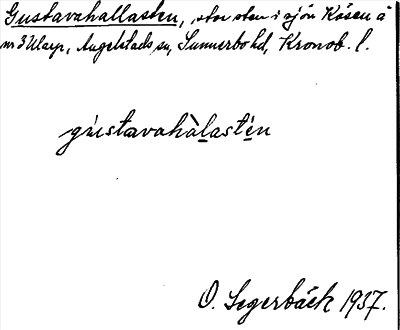 Gustavahallasten, stor sten i sjön Kösen å
nr 3 Ularp, Angelstads sn, Sunnerbo hd, Kronob. l.
gústavahàlastén
O. Segerbäck 1937.